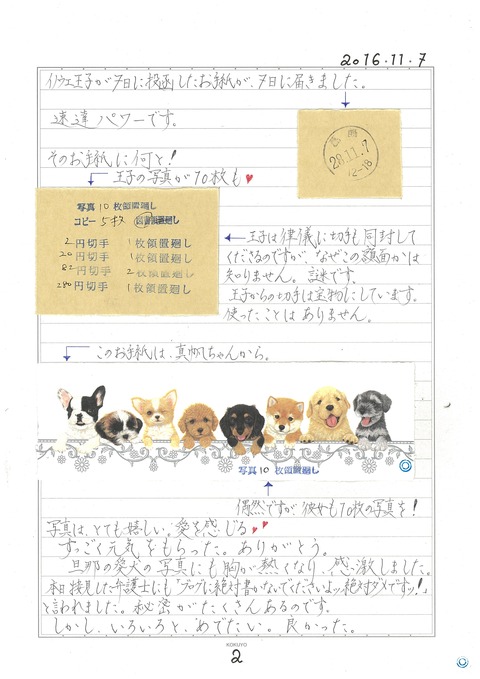 2016.11.7
王子が7日に投函したお手紙が、7日に届きました。
速達パワーです。
28.11.7
12-18
そのお手紙に何と!
王子の写真が10枚も♥
写真10枚領置廻し
コピー5枚
2円切手 1枚領置廻し
20円切手 1枚領置廻し
82円切手 2枚領置廻し
280円切手 1枚領置廻し
王子は律儀に切手も同封して
くださるのですが、なぜこの額面かは
知りません。謎です。
王子からの切手は宝物にしています。
使ったことはありません。
このお手紙は、真帆ちゃんから。
写真10枚領置廻し
偶然ですが、彼女も10枚の写真を!
写真は、とても嬉しい。愛を感じる♥♥
すっごく元気をもらった。ありがとう。
旦那の愛犬の写真にも胸が熱くなり、感激しました。
本日接見した弁護士にも「ブログに絶対書かないでくださいよッ絶対ダメですッ!」
と言われました。秘密がたくさんあるのです。
しかし、いろいろと、めでたい。良かった。
KOKUYO
2